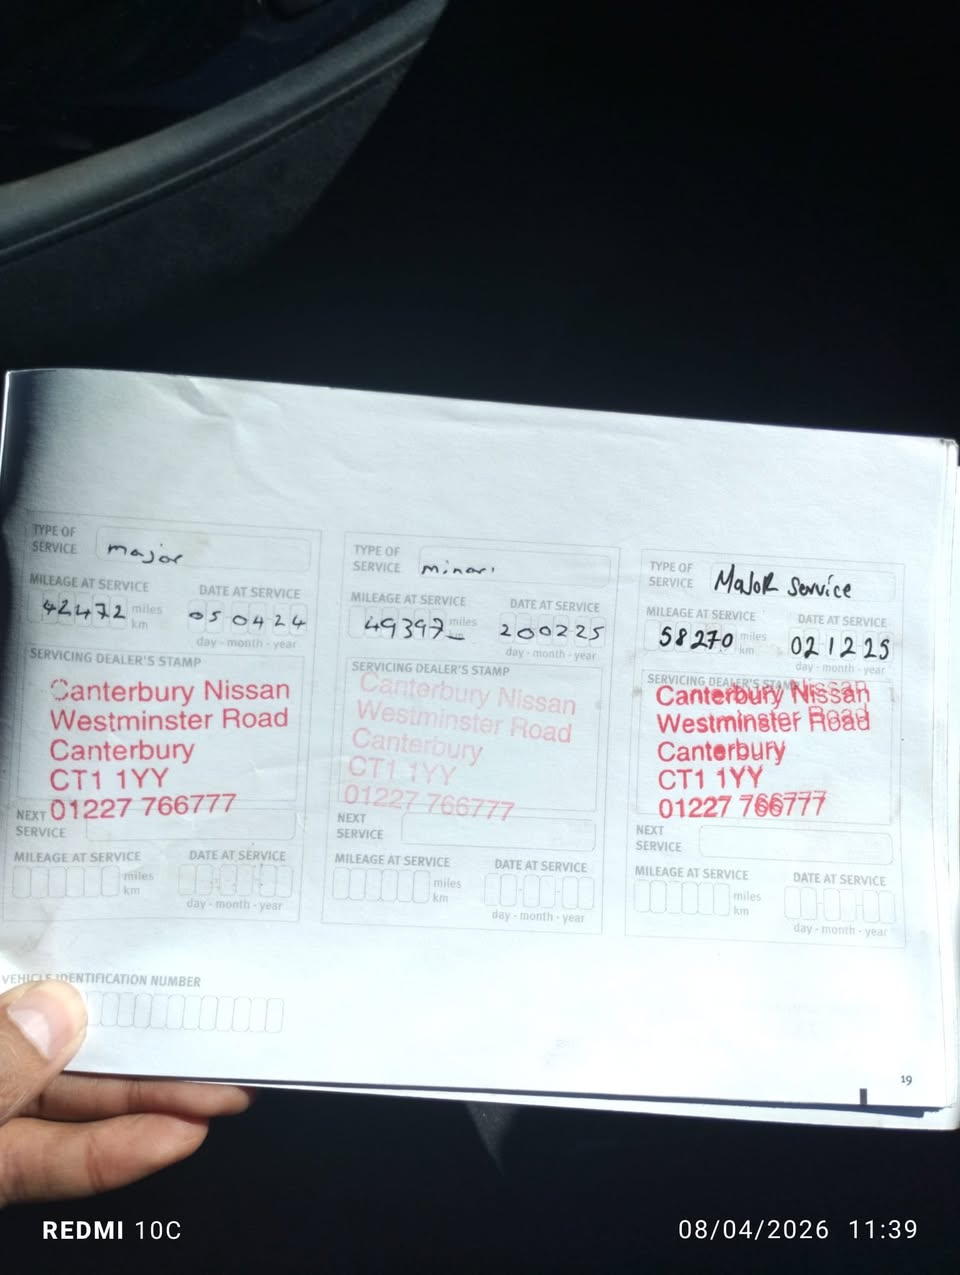 TYPE OF SERVICE major
MILEAGE AT SERVICE DATE AT SERVICE
42472 miles km 05 04 24
day - month - year
SERVICING DEALER'S STAMP
Canterbury Nissan
Westminster Road
Canterbury
CT1 1YY
01227 766777
NEXT SERVICE
MILEAGE AT SERVICE DATE AT SERVICE
miles km
day - month - year
TYPE OF SERVICE minor
MILEAGE AT SERVICE DATE AT SERVICE
49397 miles 20 02 25
day - month - year
SERVICING DEALER'S STAMP
Canterbury Nissan
Westminster Road
Canterbury
CT1 1YY
01227 766777
NEXT SERVICE
MILEAGE AT SERVICE DATE AT SERVICE
miles km
day - month - year
TYPE OF SERVICE MaJoR Service
MILEAGE AT SERVICE DATE AT SERVICE
58270 miles km 02 12 25
day - month - year
SERVICING DEALER'S STAMP
Canterbury Nissan
Westminster Road
Canterbury
CT1 1YY
01227 766777
NEXT SERVICE
MILEAGE AT SERVICE DATE AT SERVICE
miles km
day - month - year
VEHICLE IDENTIFICATION NUMBER
19
REDMI 10C
08/04/2026 11:39